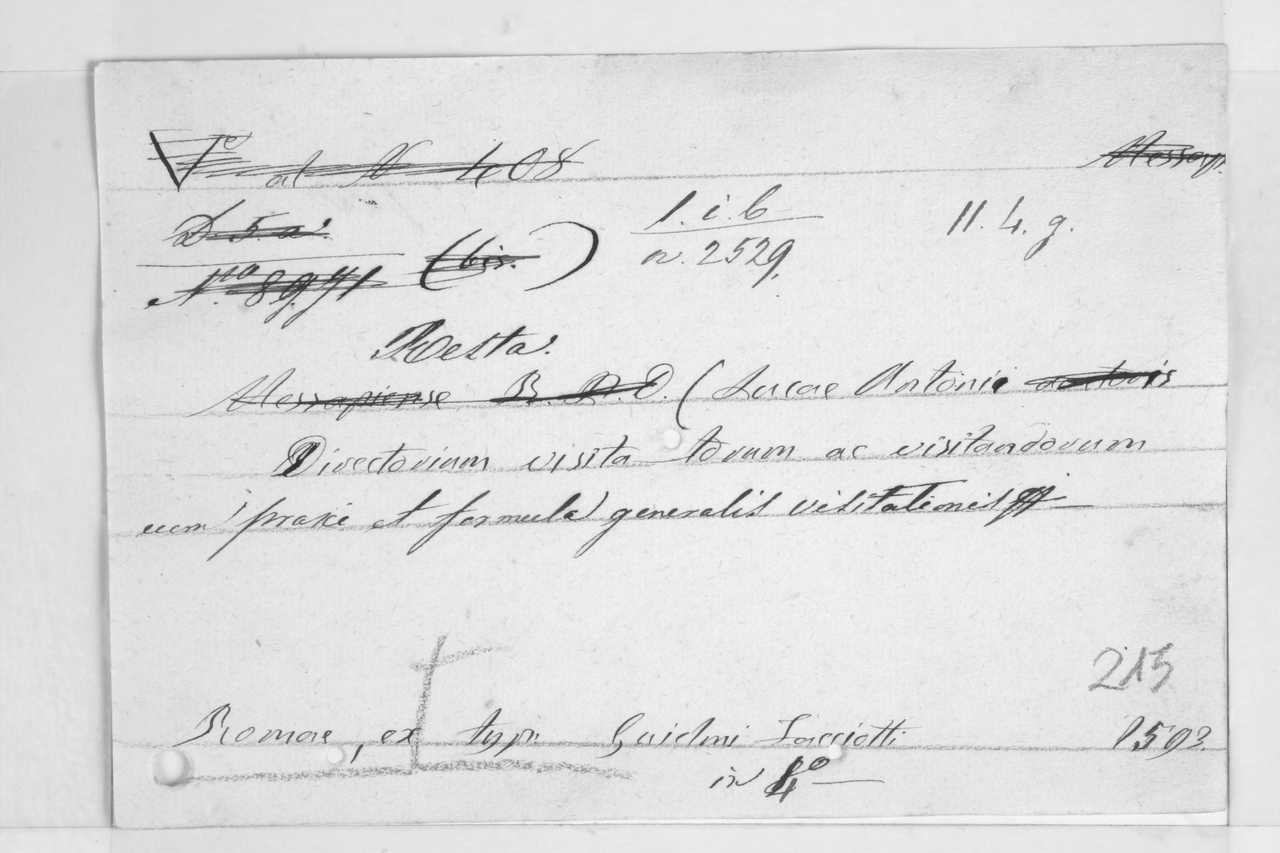 Vº al N 408 Messap.
D. 5. a.
Nº. 8971 (bis.)
1. i. 6
n. 2529.
11. 4. g.
Resta.
Messapiense B. D. D. (Lucae Antonii
Directorium visita torum ac visitandorum
cum praxi et formula generalis visitationis
215
Romae, ex typ. Guielmi Facciotti 1593.
in 4º